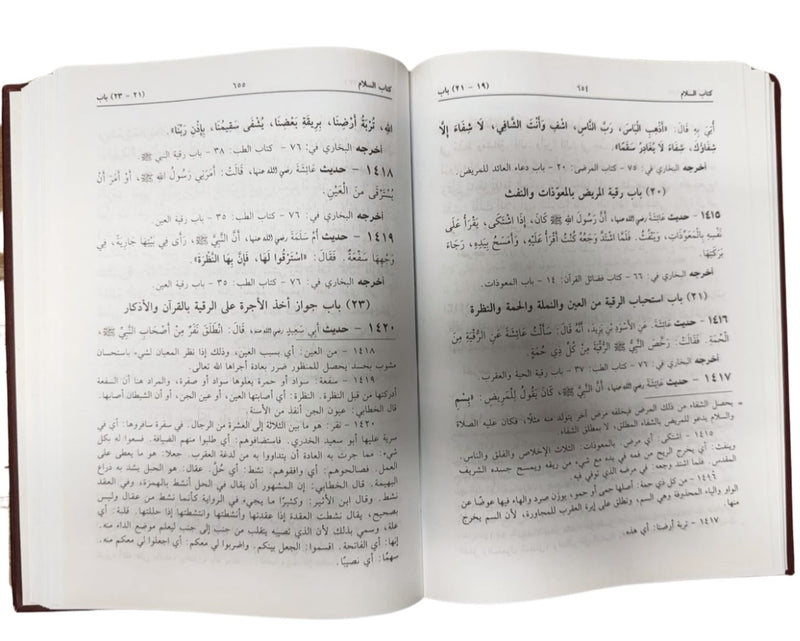 (١٩ - ٢١) باب
٦٥٤
كتاب السلام
أُتِيَ بِهِ قَالَ: «أَذْهِبِ الْبَاسَ، رَبَّ النَّاسِ، اشْفِ وَأَنْتَ الشَّافِي، لَا شِفَاءَ إِلَّا
شِفَاؤُكَ، شِفَاءً لَا يُغَادِرُ سَقَمًا».
أخرجه البخاري في: ٧٥ - كتاب المرضى: ٢٠ - باب دعاء العائد للمريض.
(٢٠) باب رقية المريض بالمعوّذات والنفث
١٤١٥ - حديث عَائِشَةَ رضي الله عنها، أَنَّ رَسُولَ اللهِ ﷺ كَانَ، إِذَا اشْتَكَى، يَقْرَأُ عَلَى
نَفْسِهِ بِالْمُعَوِّذَاتِ، وَيَنْفُثُ. فَلَمَّا اشْتَدَّ وَجَعُهُ كُنْتُ أَقْرَأُ عَلَيْهِ، وَأَمْسَحُ بِيَدِهِ، رَجَاءَ
بَرَكَتِهَا.
أخرجه البخاري في: ٦٦ - كتاب فضائل القرآن: ١٤ - باب المعوذات.
(٢١) باب استحباب الرقية من العين والنملة والحمة والنظرة
١٤١٦ - حديث عَائِشَةَ. عَنِ الأَسْوَدِ بْنِ يَزِيدَ، أَنَّهُ قَالَ: سَأَلْتُ عَائِشَةَ عَنِ الرُّقْيَةِ مِنَ
الْحُمَةِ. فَقَالَتْ: رَخَّصَ النَّبِيُّ ﷺ الرُّقْيَةَ مِنْ كُلِّ ذِي حُمَةٍ.
أخرجه البخاري في: ٧٦ - كتاب الطب: ٣٧ - باب رقية الحية والعقرب.
١٤١٧ - حديث عَائِشَةَ رضي الله عنها، أَنَّ النَّبِيَّ ﷺ، كَانَ يَقُولُ لِلْمَرِيضِ: «بِسْمِ
يحصل الشفاء من ذلك المرض فيخلفه مرض آخر يتولد منه مثلًا، فكان عليه الصلاة
والسلام يدعو للمريض بالشفاء المطلق، لا بمطلق الشفاء.
١٤١٥ - اشتكى: أي مرض. بالمعوذات: الثلاث الإخلاص والفلق والناس.
وينفث: أي يخرج الريح من فمه في يده مع شيء من ريقه ويمسح جسده الشريف
المقدس. فلما اشتد وجعه: في مرضه الذي توفي فيه.
١٤١٦ - من كل ذي حمة: أصلها حمى أو حمو، بوزن صرد والهاء فيها عوضًا عن
الواو والياء المحذوفة وهي السم، وتطلق على إبرة العقرب للمجاورة، لأن السم يخرج
منها.
١٤١٧ - تربة أرضنا: أي هذه.
(٢١ - ٢٣) باب
٦٥٥
كتاب السلام
اللهِ، تُرْبَةُ أَرْضِنَا، بِرِيقَةِ بَعْضِنَا، يُشْفَى سَقِيمُنَا، بِإِذْنِ رَبِّنَا».
أخرجه البخاري في: ٧٦ - كتاب الطب: ٣٨ - باب رقية النبي ﷺ
١٤١٨ - حديث عَائِشَةَ رضي الله عنها، قَالَتْ: أَمَرَنِي رَسُولُ اللهِ ﷺ، أَوْ أَمَرَ أَنْ
يُسْتَرْقَى مِنَ الْعَيْنِ.
أخرجه البخاري في: ٧٦ - كتاب الطب: ٣٥ - باب رقية العين.
١٤١٩ - حديث أُمِّ سَلَمَةَ رضي الله عنها، أَنَّ النَّبِيَّ ﷺ، رَأَى فِي بَيْتِهَا جَارِيَةً، فِي
وَجْهِهَا سَفْعَةٌ. فَقَالَ: «اسْتَرْقُوا لَهَا، فَإِنَّ بِهَا النَّظْرَةَ».
أخرجه البخاري في: ٧٦ - كتاب الطب: ٣٥ - باب رقية العين.
(٢٣) باب جواز أخذ الأجرة على الرقية بالقرآن والأذكار
١٤٢٠ - حديث أَبِي سَعِيدٍ رضي الله عنه، قَالَ: انْطَلَقَ نَفَرٌ مِنْ أَصْحَابِ النَّبِيِّ ﷺ،
١٤١٨ - من العين: أي بسبب العين، وذلك إذا نظر المعيان لشيء باستحسان
مشوب بحسد يحصل للمنظور ضرر بعادة أجراها الله تعالى.
١٤١٩ - سفعة: سواد أو حمرة يعلوها سواد أو صفرة، والمراد هنا أن السفعة
أدركتها من قبل النظرة. النظرة: أي أصابتها العين، أو عين الجن، أو أن الشيطان أصابها.
قال الخطابي: عيون الجن أنفذ من الأسنة.
١٤٢٠ - نفر: هو ما بين الثلاثة إلى العشرة من الرجال. في سفرة سافروها: أي في
سرية عليها أبو سعيد الخدري. فاستضافوهم: أي طلبوا منهم الضيافة. فسعوا له بكل
شيء: مما جرت به العادة أن يتداووا به من لدغة العقرب. جعلا: هو ما يعطى على
العمل. فصالحوهم: أي وافقوهم. نشط: أي حُلَّ. عقال: هو الحبل يشد به ذراع
البهيمة. قال الخطابي: إن المشهور أن يقال في الحل أنشط بالهمزة، وفي العقد
نشط. وقال ابن الأثير: وكثيرًا ما يجيء في الرواية كأنما نشط من عقال وليس
بصحيح، يقال نشطت العقدة إذا عقدتها وأنشطتها وانتشطتها إذا حللتها. قلبة: أي
علة، وسمي بذلك لأن الذي تصيبه يتقلب من جنب إلى جنب ليعلم موضع الداء منه.
إنها: أي الفاتحة. اقسموا: الجعل بينكم. واضربوا لي معكم: أي اجعلوا لي معكم منه.
سهمًا: أي نصيبًا.